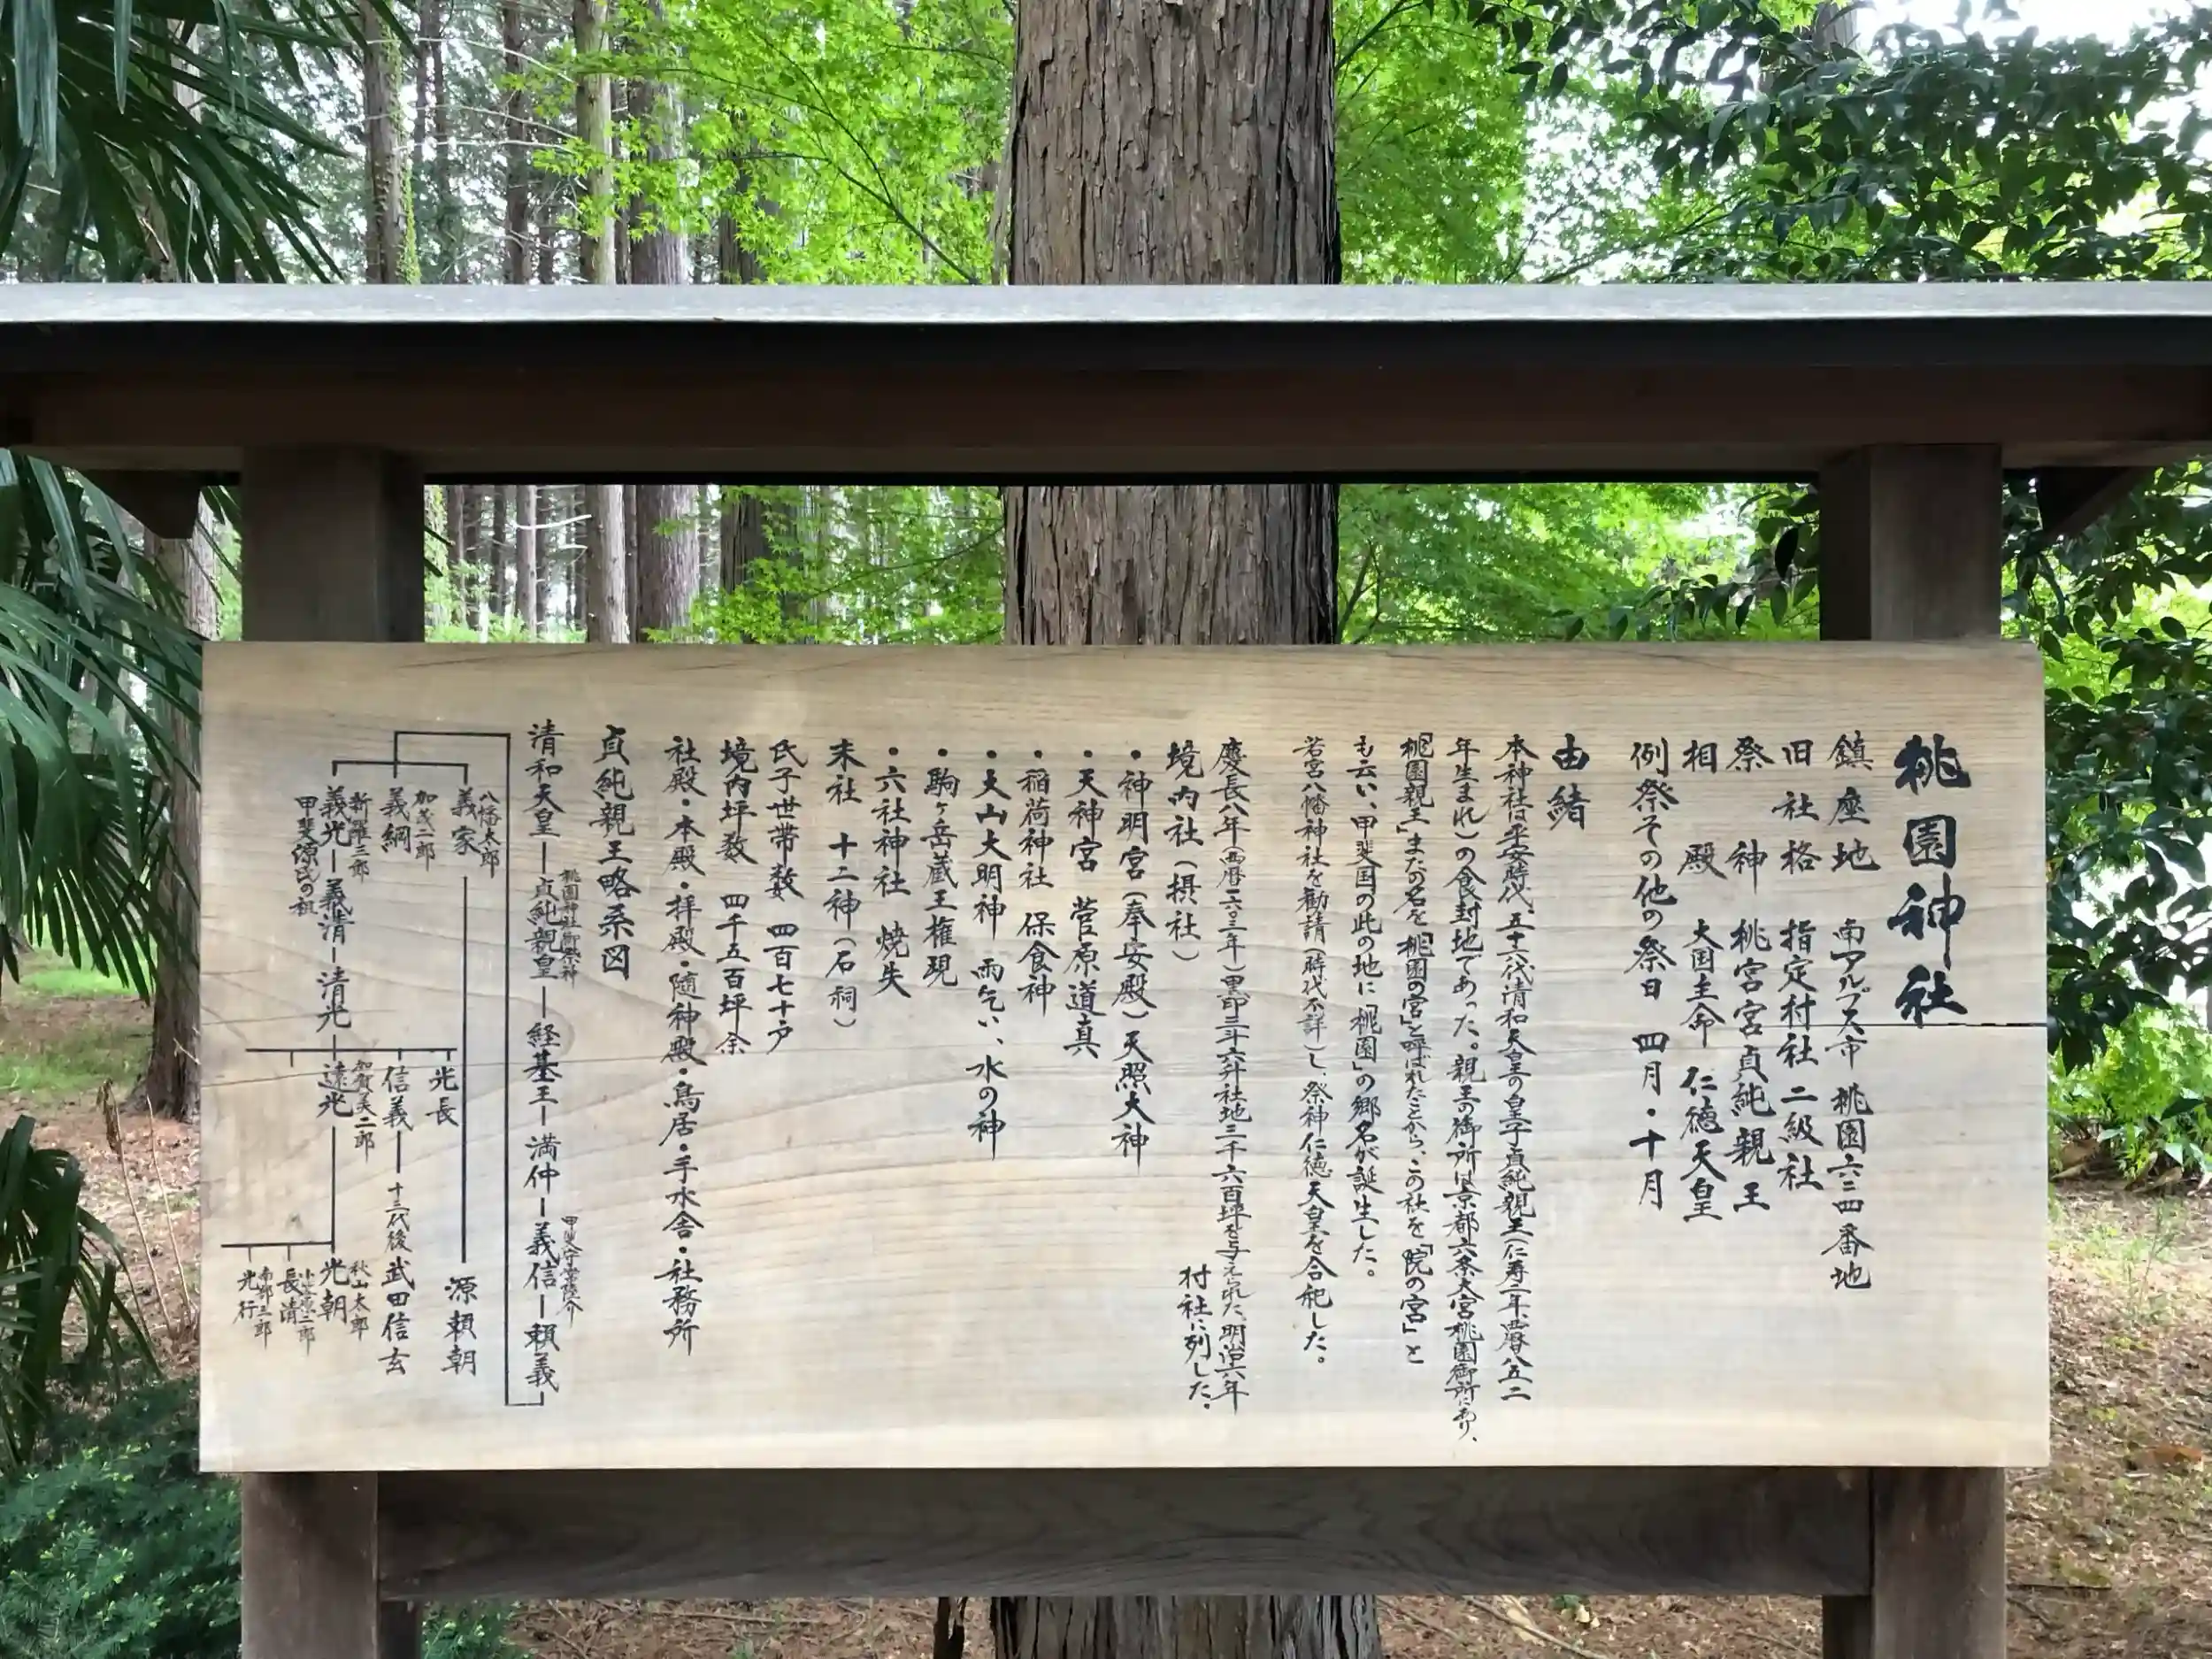 桃園神社
鎮座地 南アルプス市 桃園六三四番地
旧社格 指定村社 二級社
祭神 桃宮宮貞純親王
相殿 大国主命 仁徳天皇
例祭その他の祭日 四月・十月
由緒
本神社は平安時代、五十六代清和天皇の皇子貞純親王(仁寿二年、西暦八五二
年生まれ)の食封地であった。親王の御所は京都六条大宮桃園御所にあり、
「桃園親王」またの名を「桃園の宮」と呼ばれたことから、この社を「院の宮」と
も云い、甲斐国の此の地に「桃園」の郷名が誕生した。
若宮八幡神社を勧請(時代不詳)し、祭神仁徳天皇を合祀した。
慶長八年(西暦一六〇三年)黒印三斗六升社地二千六百坪を与えられた、明治六年
村社に列した。
境内社(摂社)
・神明宮(奉安殿)天照大神
・天神宮 菅原道真
・稲荷神社 保食神
・大山大明神 雨乞い、水の神
・駒ヶ岳蔵王権現
・六社神社 焼失
末社 十二神(石祠)
氏子世帯数 四百七十戸
境内坪数 四千五百坪余
社殿・本殿・拝殿・随神殿・鳥居・手水舎・社務所
貞純親王略系図
桃園神社御祭神
甲斐守常陸介
清和天皇―貞純親皇―経基王―満仲―義信―頼義
八幡太郎
義家 源頼朝
加茂二郎
義綱
新羅三郎
義光―義清―清光
甲斐源氏の祖
光長
信義―十三代後 武田信玄
加賀美二郎
遠光
秋山太郎
光朝
小笠原二郎
長清
南部三郎
光行